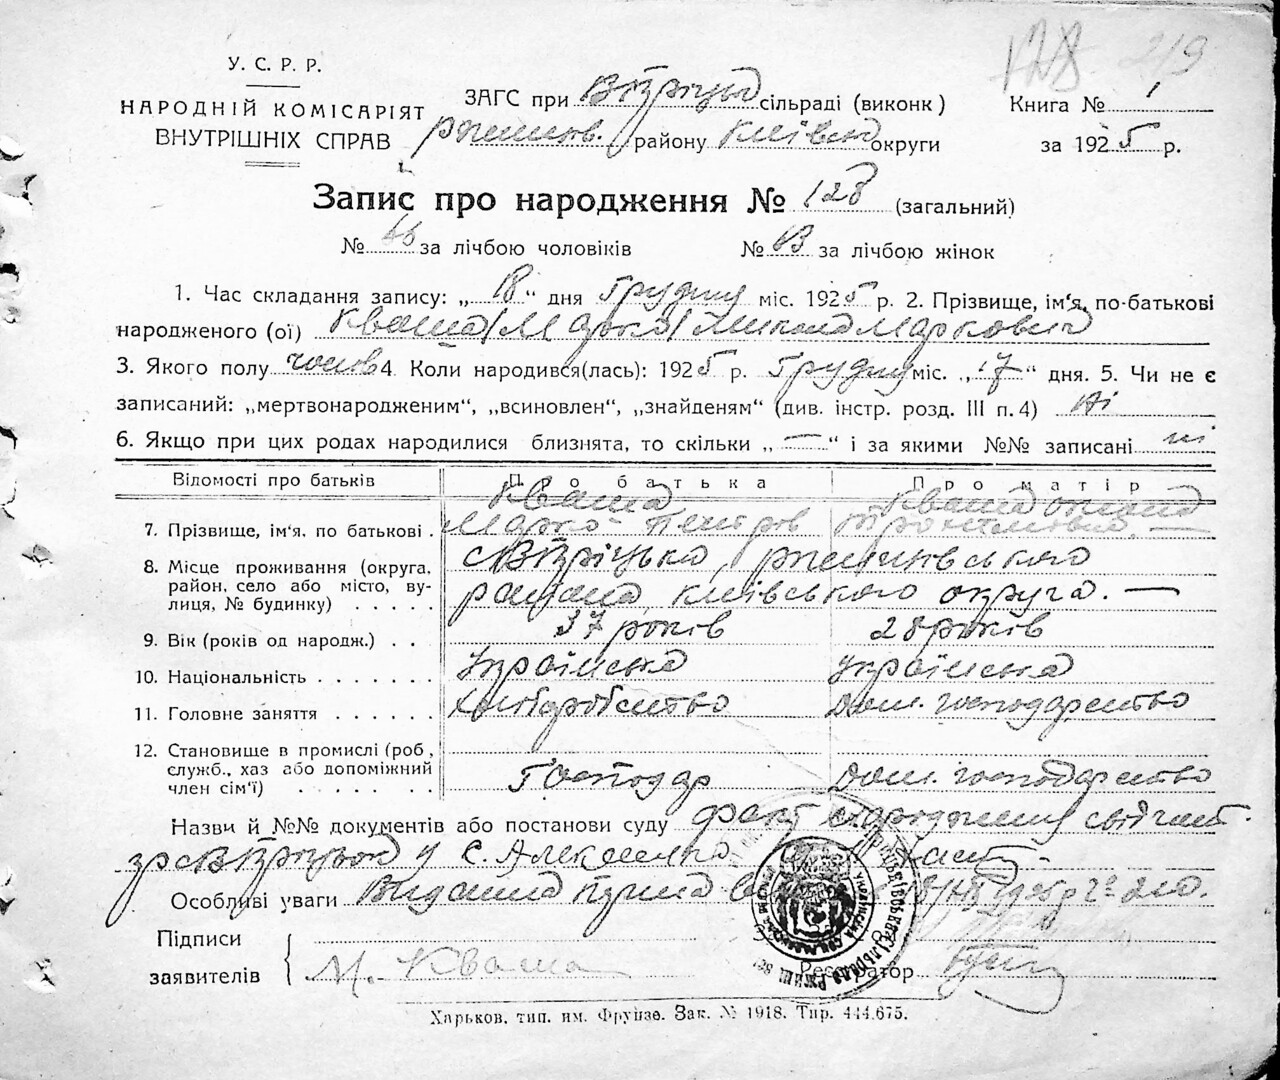 128 219
У. С. Р. Р.
НАРОДНІЙ КОМІСАРІЯТ
ВНУТРІШНІХ СПРАВ
ЗАГС при сільраді (виконк) Книга № 1
району Київськ округи за 1925 р.
Запис про народження № 128 (загальний)
№ 66 за лічбою чоловіків № за лічбою жінок
1. Час складання запису: „18“ дня Грудня міс. 1925 р. 2. Прізвище, ім‘я, по-батькові
народженого (ої) Кваша /Марко/ Микола Маркович
3. Якого полу чолов 4 Коли народився(лась): 1925 р. Грудня міс. „17“ дня. 5. Чи не є
записаний: „мертвонародженим“, „всиновлен“, „знайденям“ (див. інстр. розд. III п. 4) ні
6. Якщо при цих родах народилися близнята, то скільки „—“ і за якими №№ записані ні
Відомості про батьків Про батька Про матір
7. Прізвище, ім‘я. по батькові . Кваша Марко Петров Кваша
8. Місце проживання (округа, район, село або місто, вулиця, № будинку) . . . . . району, Київського округа. —
9. Вік (років од народж.) . . 37 років 28 років
10. Національність . . . . . . . українська українська
11. Головне заняття . . . . . . хліборобство Дом. господарство
12. Становище в промислі (роб, служб., хаз або допоміжний член сім‘ї) . . . . . . Господар Дом. господарство
Назви й №№ документів або постанови суду факт народження свідчить
гр. с. Алексенко
Особливі уваги Видана 1925 р.
Підписи
заявителів М. Кваша Реєстратор
Харьков, тип. им. Фрунзе. Зак. № 1918. Тир. 444.675.